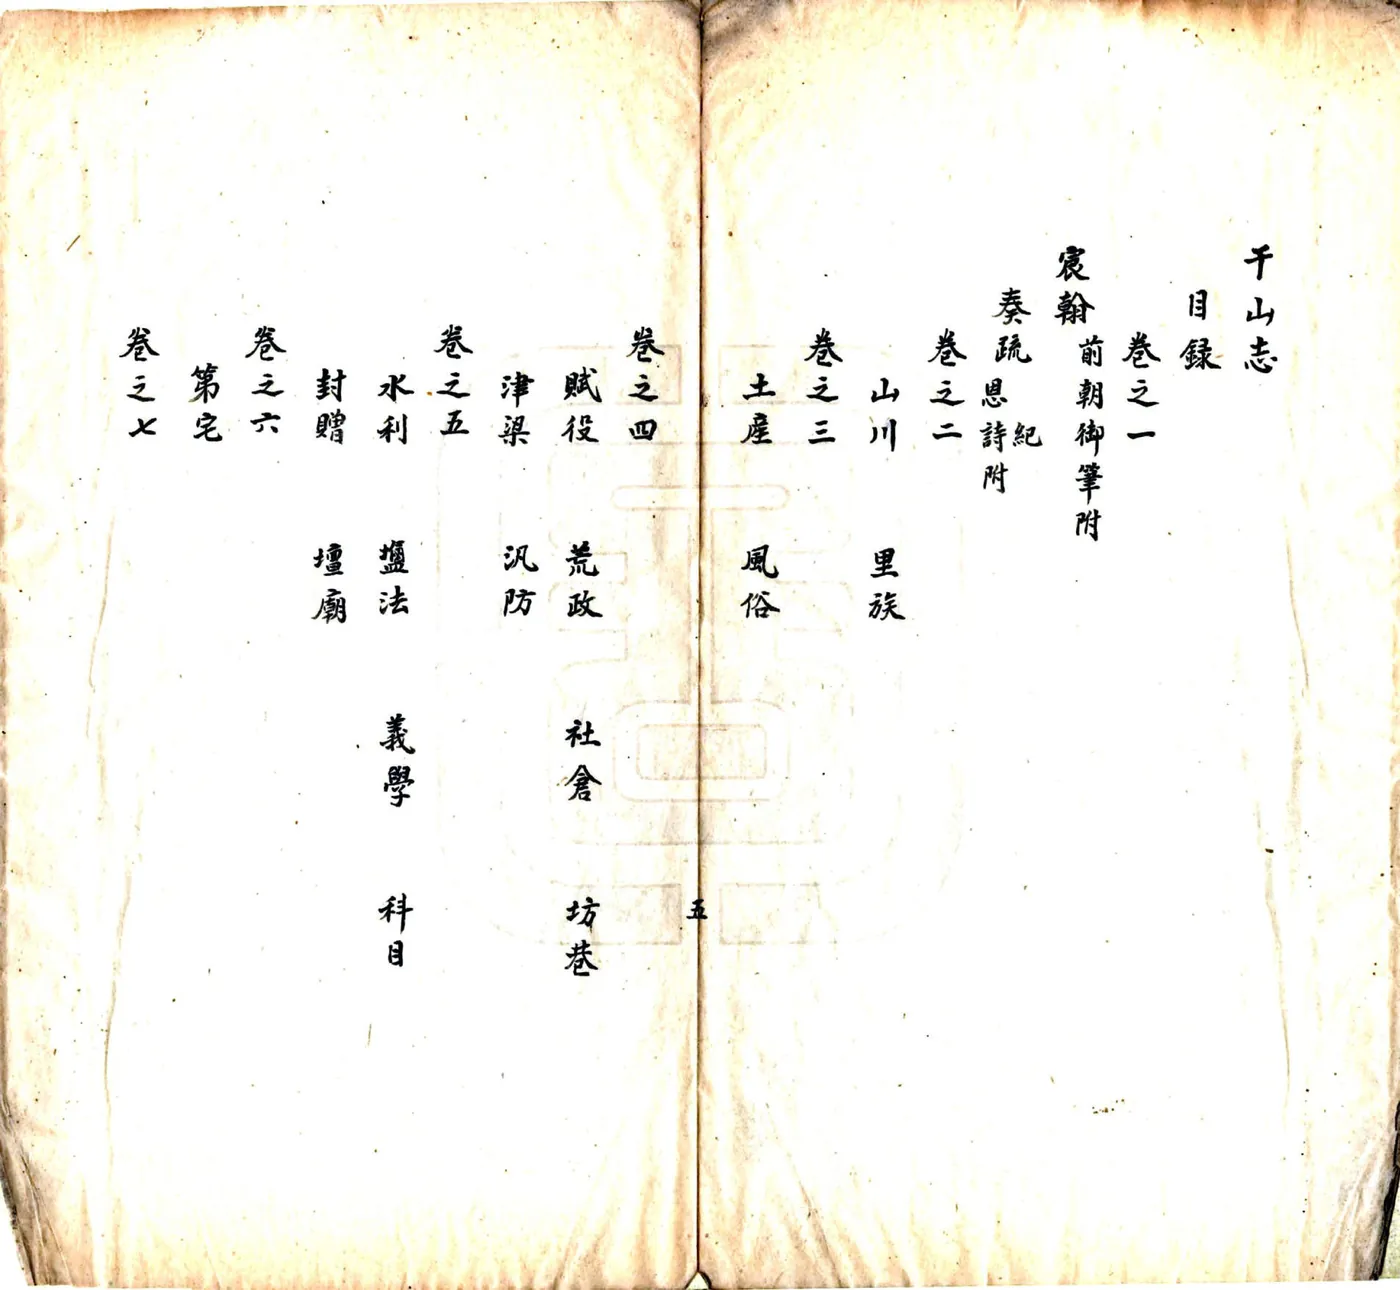 干山志
目録
卷之一
宸翰 前朝御筆附
奏疏 紀恩詩附
卷之二
山川 里族
卷之三
土産 風俗
五
卷之四
賦役 荒政 社倉 坊巷
津梁 汛防
卷之五
水利 鹽法 義學 科目
封贈 壇廟
卷之六
第宅
卷之七